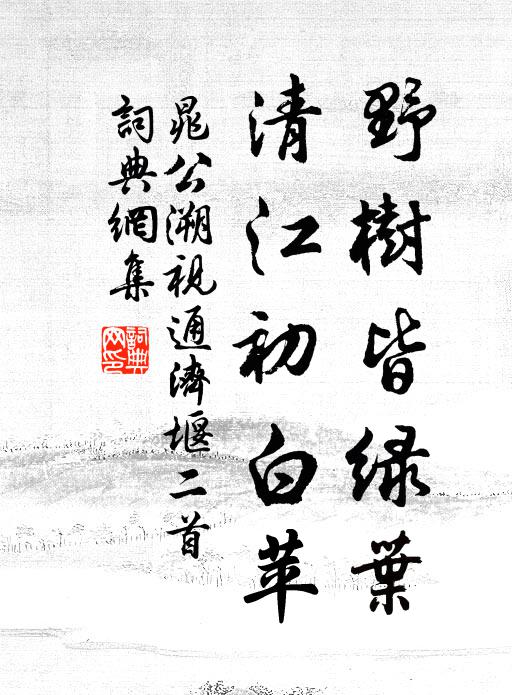 野樹皆緑葉
清江初白苹
晁公溯視通濟堰二首
詞典網集
詞典網印